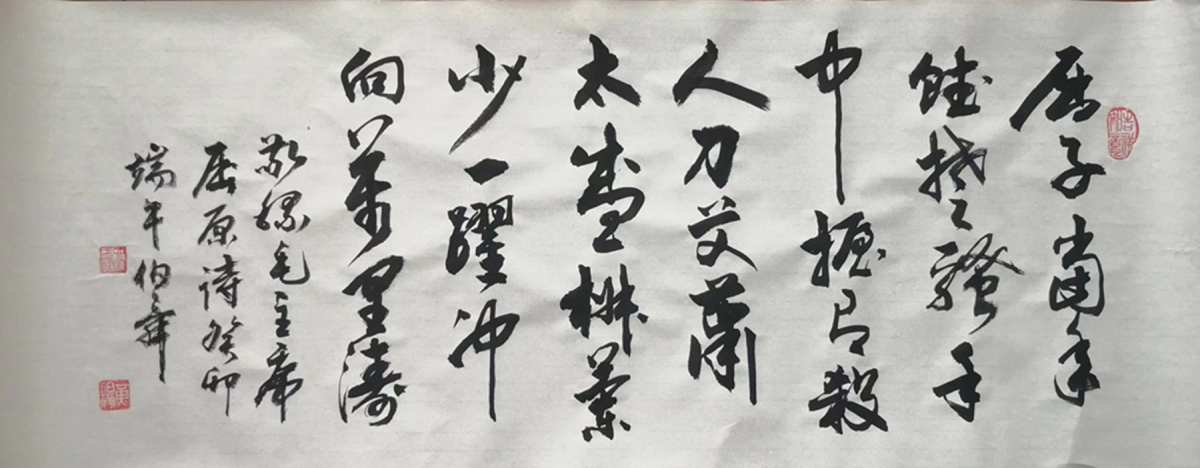 屈子當年
賦楚騷手
中握有殺
人刀艾蕭
太盛椒蘭
少一躍沖
向萬里濤
敬録毛主席
屈原诗癸卯
端午伯